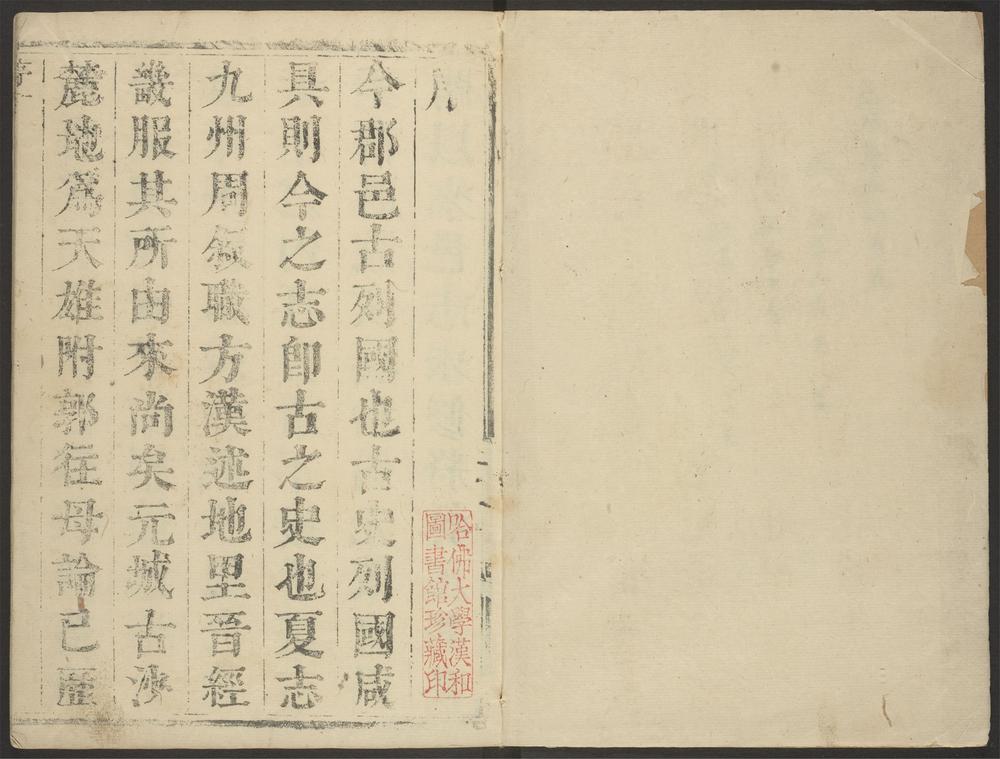 序
今郡邑古列國也古史列國咸
具則今之志卽古之史也夏志
九州周叙職方漢述地里晉經
畿服其所由來尚矣元城古沙
麓地爲天雄附郭徃毋論已歷
哈佛大學漢和
圖書館珍藏印